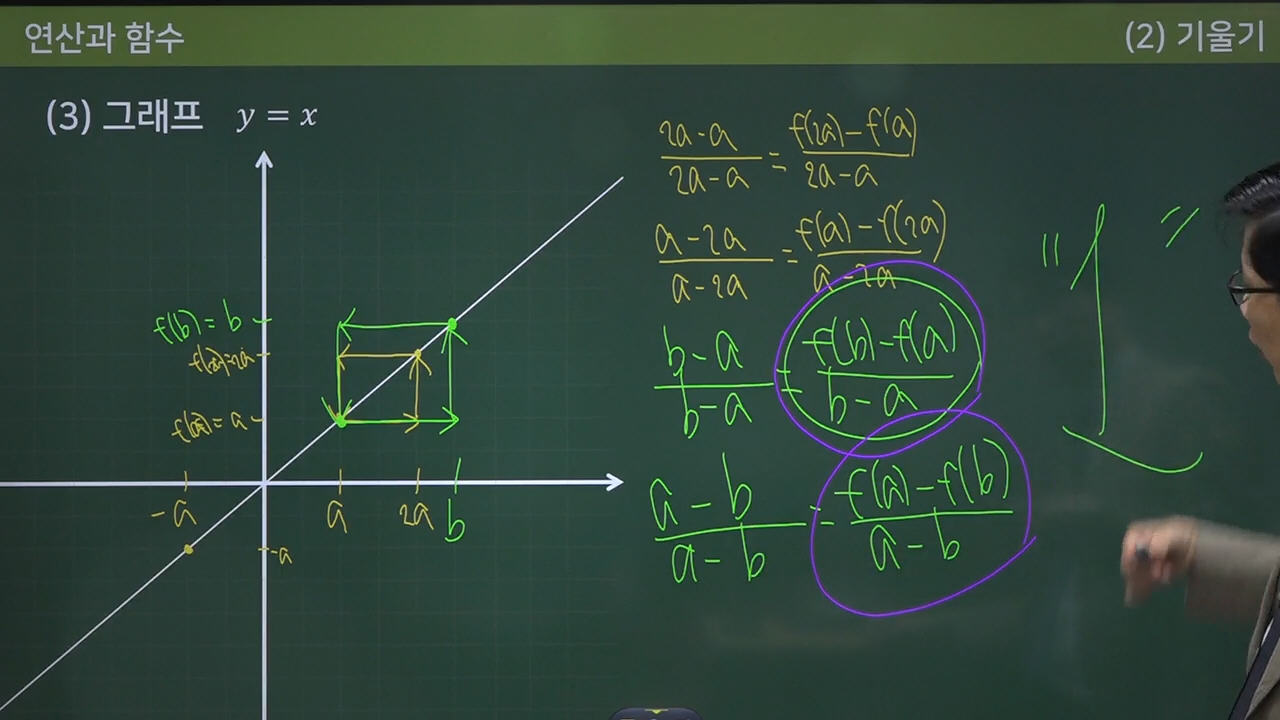 연산과 함수
(2) 기울기
(3) 그래프 y = x
f(b) = b
f(2a)=2a
= a
-a
a
2a
b
-a
(2a-a)/(2a-a) = (f(2a)-f(a))/(2a-a)
(a-2a)/(a-2a) = (f(a)-f(2a))/(a-2a)
(b-a)/(b-a) = (f(b)-f(a))/(b-a)
(a-b)/(a-b) = (f(a)-f(b))/(a-b)
"1"